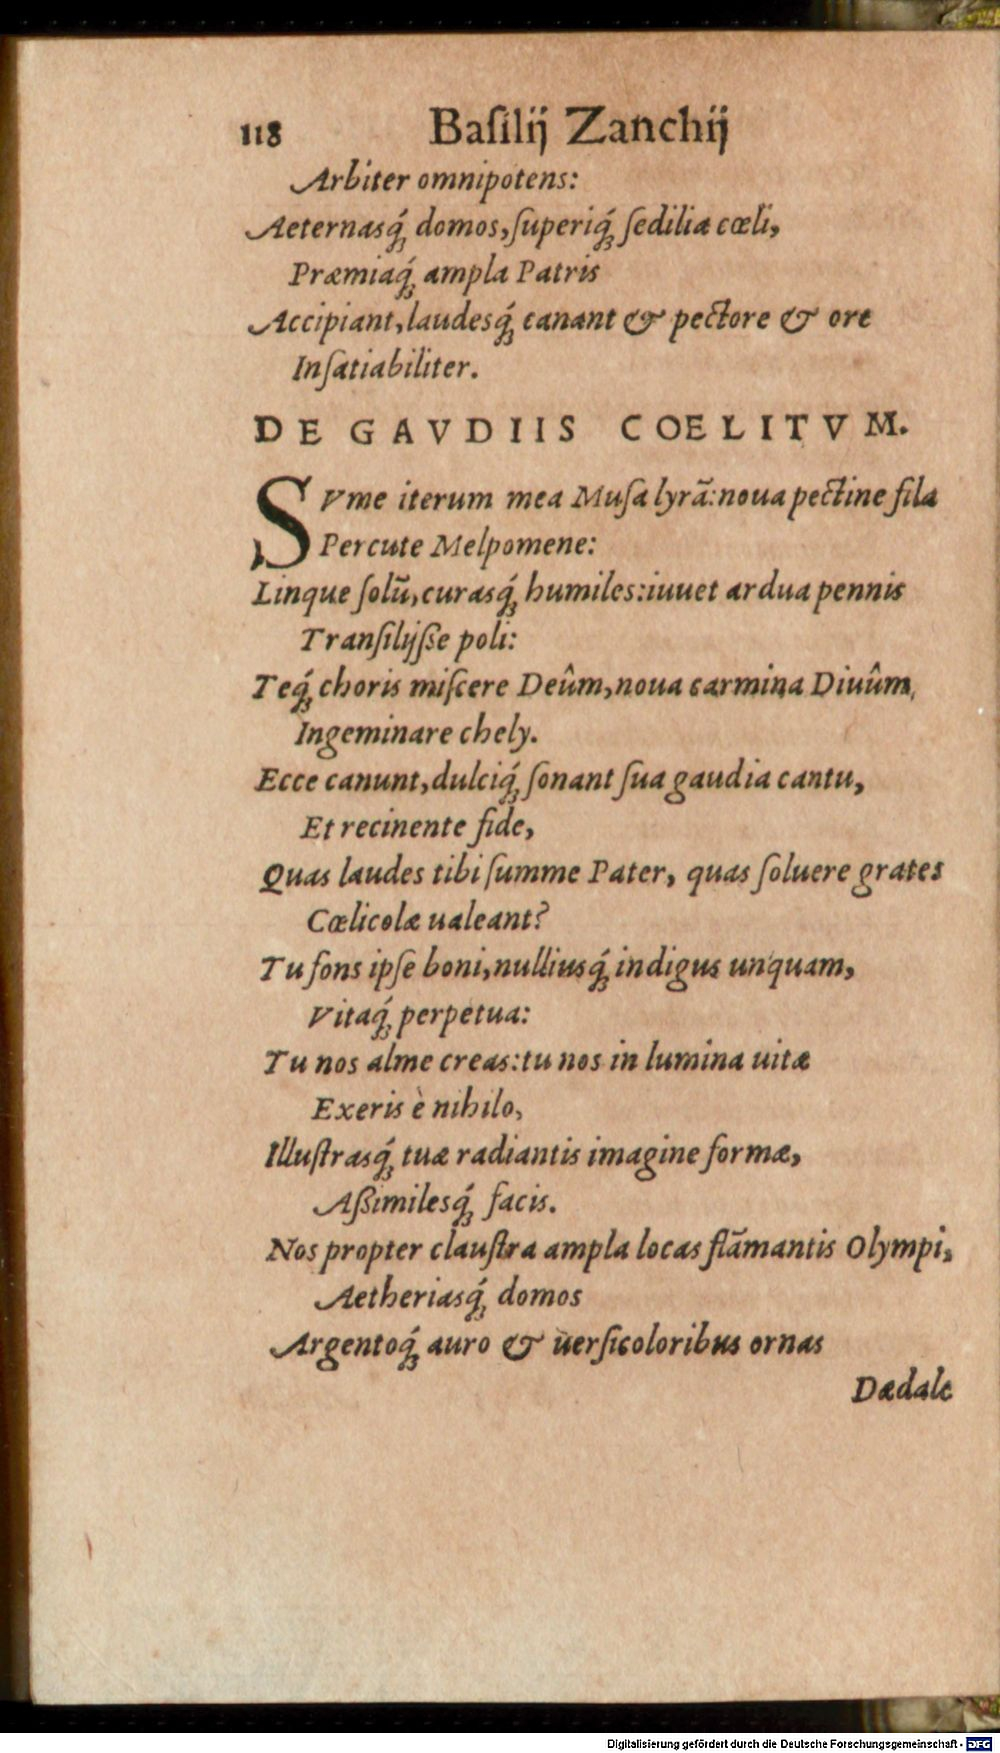 118 Baſilij Zanchij
Arbiter omnipotens:
Aeternasq́; domos, ſuperiq́; ſedilia cœli,
Præmiaq́; ampla Patris
Accipiant, laudesq́; canant & pectore & ore
Inſatiabiliter.
DE GAVDIIS COELITVM.
SVme iterum mea Muſa lyrã: noua pectine fila
Percute Melpomene:
Linque ſolũ, curasq́; humiles: iuuet ardua pennis
Tranſilijſſe poli:
Teq́; choris miſcere Deûm, noua carmina Diuûm,
Ingeminare chely.
Ecce canunt, dulciq́; ſonant ſua gaudia cantu,
Et recinente fide,
Quas laudes tibi ſumme Pater, quas ſoluere grates
Cœlicolæ ualeant?
Tu fons ipſe boni, nulliusq́; indigus unquam,
Vitaq́; perpetua:
Tu nos alme creas: tu nos in lumina uitæ
Exeris è nihilo,
Illuſtrasq́; tuæ radiantis imagine formæ,
Aſſimilesq́; facis.
Nos propter clauſtra ampla locas flãmantis Olympi,
Aetheriasq́; domos
Argentoq́; auro & uerſicoloribus ornas
Dædale
Digitalisierung gefördert durch die Deutsche Forschungsgemeinschaft - DFG